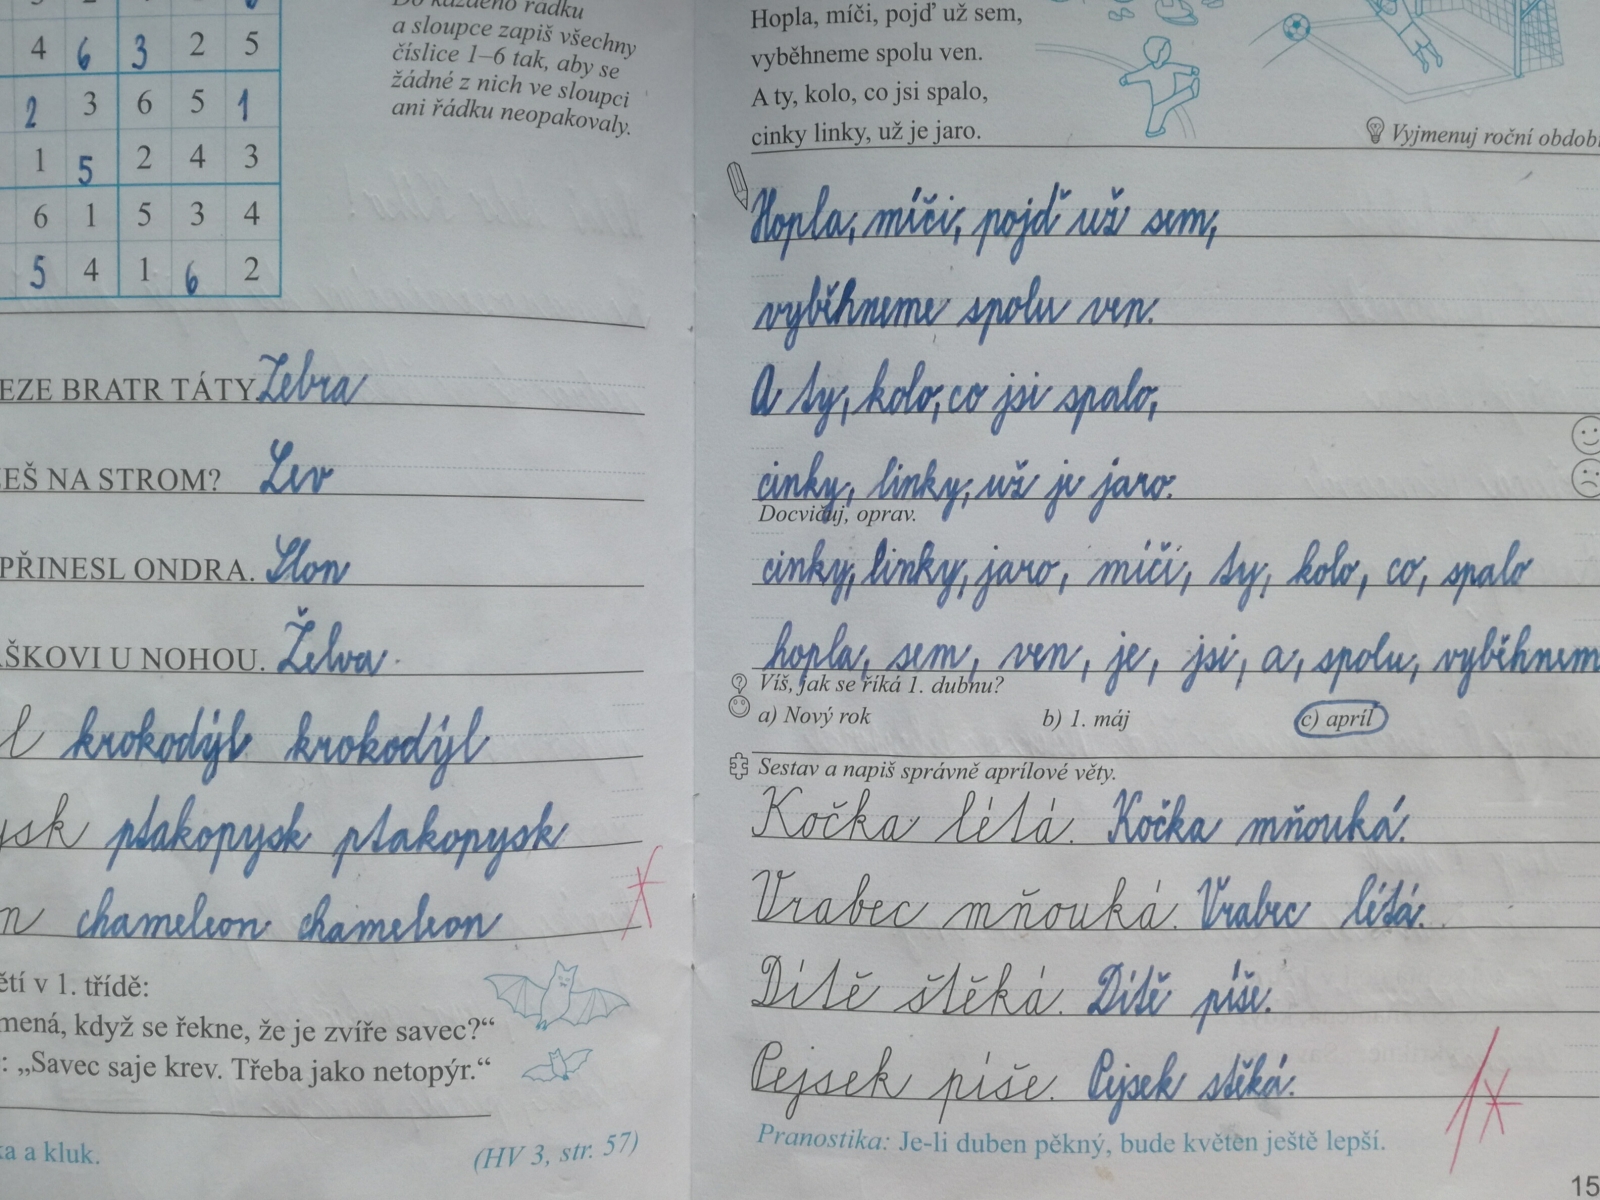 4 6 3 2 5
2 3 6 5 1
1 5 2 4 3
6 1 5 3 4
5 4 1 6 2
Do každého řádku
a sloupce zapiš všechny
číslice 1–6 tak, aby se
žádné z nich ve sloupci
ani řádku neopakovaly.
EZE BRATR TÁTY Zebra
EŠ NA STROM? Lev
PŘINESL ONDRA. Slon
ŠKOVI U NOHOU. Želva.
l krokodýl krokodýl
ysk ptakopysk ptakopysk
n chameleon chameleon
ětí v 1. třídě:
mená, když se řekne, že je zvíře savec?“
: „Savec saje krev. Třeba jako netopýr.“
ka a kluk.
(HV 3, str. 57)
Hopla, míči, pojď už sem,
vyběhneme spolu ven.
A ty, kolo, co jsi spalo,
cinky linky, už je jaro.
Vyjmenuj roční obdobi
Hopla, míči, pojď už sem,
vyběhneme spolu ven.
A ty, kolo, co jsi spalo,
cinky, linky, už je jaro.
Docvičuj, oprav.
cinky, linky, jaro, míči, ty, kolo, co, spalo
hopla, sem, ven, je, jsi, a, spolu, vyběhnem
Víš, jak se říká 1. dubnu?
a) Nový rok b) 1. máj c) apríl
Sestav a napiš správně aprílové věty.
Kočka létá. Kočka mňouká.
Vrabec mňouká. Vrabec létá.
Dítě štěká. Dítě píše.
Pejsek píše. Pejsek stěká.
1*
Pranostika: Je-li duben pěkný, bude květen ještě lepší.
15